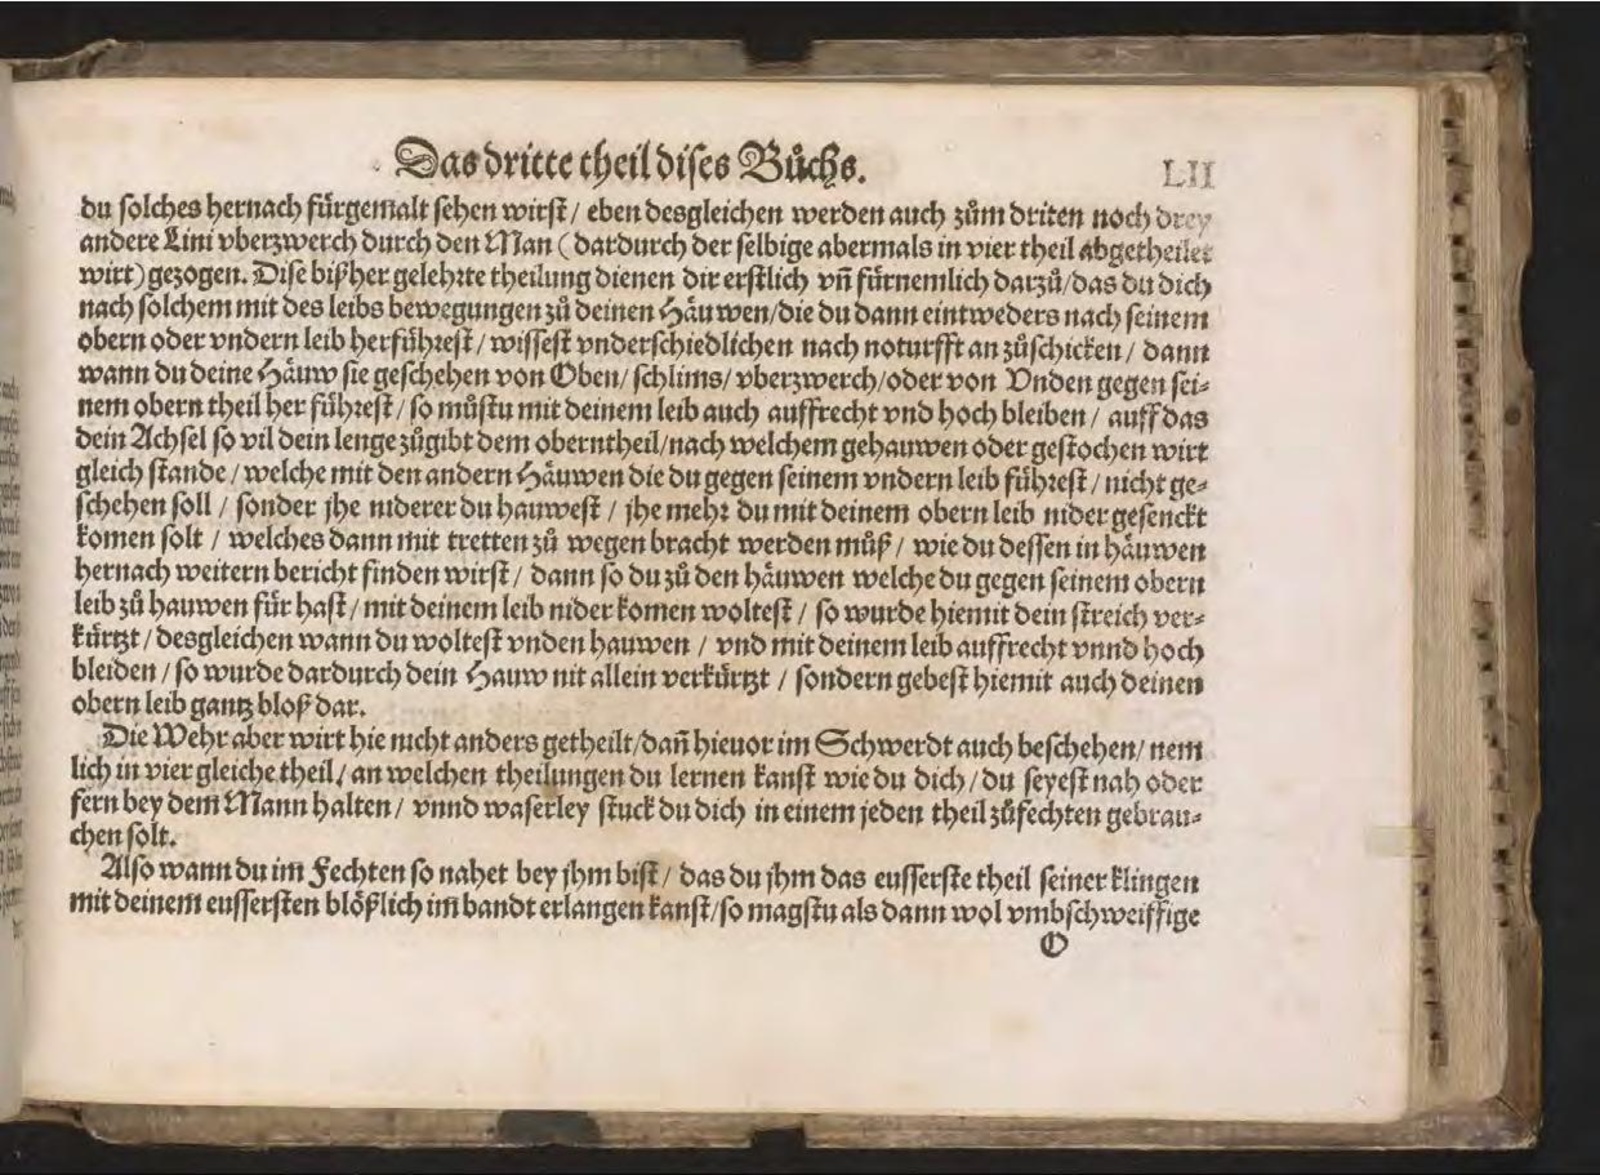 Das dritte theil dises Bůchs. LII
du solches hernach fürgemalt sehen wirst / eben desgleichen werden auch zům driten noch drey
andere Lini vberzwerch durch den Man (dardurch der selbige abermals in vier theil abgetheilet
wirt) gezogen. Dise bißher gelehrte theilung dienen dir erstlich vn̄ fürnemlich darzů/das du dich
nach solchem mit des leibs bewegungen zů deinen Häuwen/die du dann eintweders nach seinem
obern oder vndern leib herführest / wissest vnderschiedlichen nach noturfft an zůschicken / dann
wann du deine Häuw sie geschehen von Oben/ schlims/ vberzwerch/oder von Vnden gegen sei⸗
nem obern theil her führest / so můstu mit deinem leib auch auffrecht vnd hoch bleiben / auff das
dein Achsel so vil dein lenge zůgibt dem oberntheil/nach welchem gehauwen oder gestochen wirt
gleich stande / welche mit den andern Häuwen die du gegen seinem vndern leib führest / nicht ge⸗
schehen soll / sonder jhe niderer du hauwest / jhe mehr du mit deinem obern leib nider gesenckt
komen solt / welches dann mit tretten zů wegen bracht werden můß / wie du dessen in häuwen
hernach weitern bericht finden wirst / dann so du zů den häuwen welche du gegen seinem obern
leib zů hauwen für hast / mit deinem leib nider komen woltest / so wurde hiemit dein streich ver⸗
kürtzt / desgleichen wann du woltest vnden hauwen / vnd mit deinem leib auffrecht vnnd hoch
bleiben / so wurde dardurch dein Hauw nit allein verkürtzt / sondern gebest hiemit auch deinen
obern leib gantz bloß dar.
Die Wehr aber wirt hie nicht anders getheilt/dan̄ hieuor im Schwerdt auch beschehen/ nem
lich in vier gleiche theil / an welchen theilungen du lernen kanst wie du dich / du seyest nah oder
fern bey dem Mann halten / vnnd waserley stuck du dich in einem jeden theil zůfechten gebrau⸗
chen solt.
Also wann du im Fechten so nahet bey jhm bist / das du jhm das eusserste theil seiner klingen
mit deinem eussersten blößlich im̄ bandt erlangen kanst/so magstu als dann wol vmbschweiffige
O